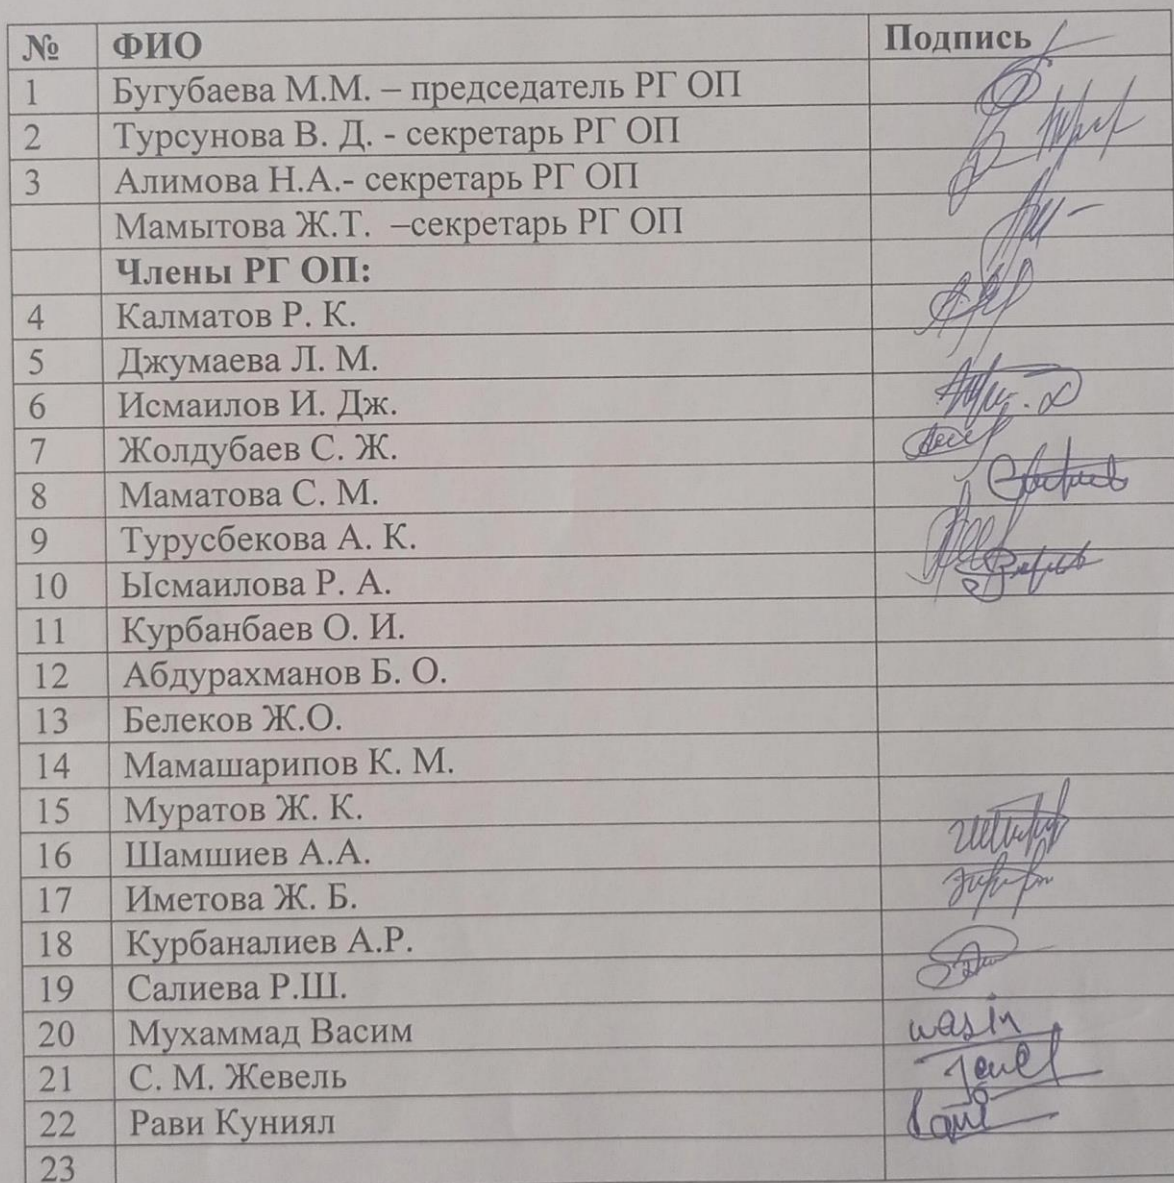 № ФИО Подпись
1 Бугубаева М.М. – председатель РГ ОП
2 Турсунова В. Д. - секретарь РГ ОП
3 Алимова Н.А.- секретарь РГ ОП
Мамытова Ж.Т. –секретарь РГ ОП
Члены РГ ОП:
4 Калматов Р. К.
5 Джумаева Л. М.
6 Исмаилов И. Дж.
7 Жолдубаев С. Ж.
8 Маматова С. М.
9 Турусбекова А. К.
10 Ысмаилова Р. А.
11 Курбанбаев О. И.
12 Абдурахманов Б. О.
13 Белеков Ж.О.
14 Мамашарипов К. М.
15 Муратов Ж. К.
16 Шамшиев А.А.
17 Иметова Ж. Б.
18 Курбаналиев А.Р.
19 Салиева Р.Ш.
20 Мухаммад Васим wasim
21 С. М. Жевель
22 Рави Куниял
23